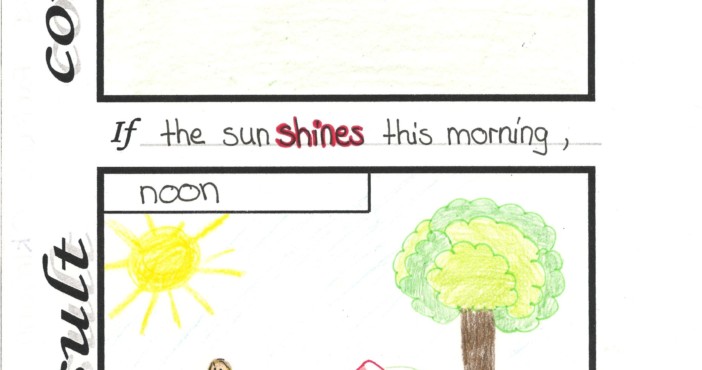 If the sun shines this morning,
noon